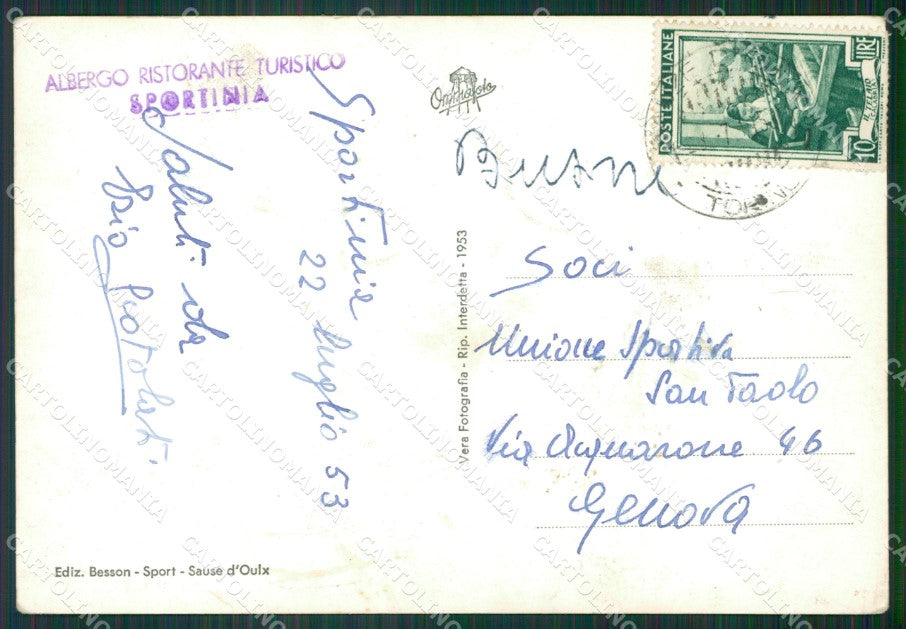 ALBERGO RISTORANTE TURISTICO
SPORTINIA
Sportinia
22 luglio 53
Saluti da
Ediz. Besson - Sport - Sause d'Oulx
Vera Fotografia - Rip. Interdetta - 1953
POSTE ITALIANE
10
LIRE
TORINO
Soci
Unione Sportiva
San Paolo
Via Acquarone 46
Genova
CARTOLINOMANIA